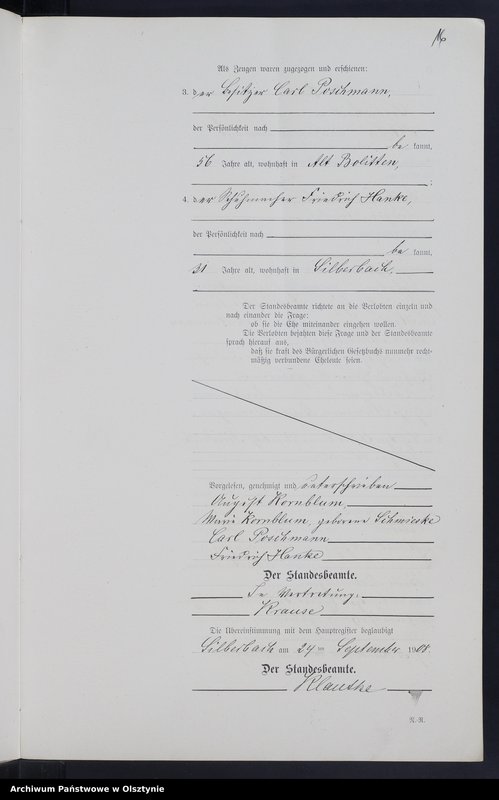 16
Als Zeugen waren zugezogen und erschienen:
3. der Besitzer Carl Poschmann,
der Persönlichkeit nach
be kannt,
56 Jahre alt, wohnhaft in Alt Bolitten,
4. der Schuhmacher Friedrich Hanke,
der Persönlichkeit nach
be kannt,
31 Jahre alt, wohnhaft in Silberbach.
Der Standesbeamte richtete an die Verlobten einzeln und
nach einander die Frage:
ob sie die Ehe miteinander eingehen wollen.
Die Verlobten bejahten diese Frage und der Standesbeamte
sprach hierauf aus,
daß sie kraft des Bürgerlichen Gesetzbuchs nunmehr recht-
mäßig verbundene Eheleute seien.
Vorgelesen, genehmigt und unterschrieben
August Kornblum
Marie Kornblum, geborene Schmieske
Carl Poschmann
Friedrich Hanke
Der Standesbeamte.
In Vertretung:
Krause
Die Übereinstimmung mit dem Hauptregister beglaubigt
Silberbach am 24 ten September 1908.
Der Standesbeamte.
Klautke
N.-R.
Archiwum Państwowe w Olsztynie